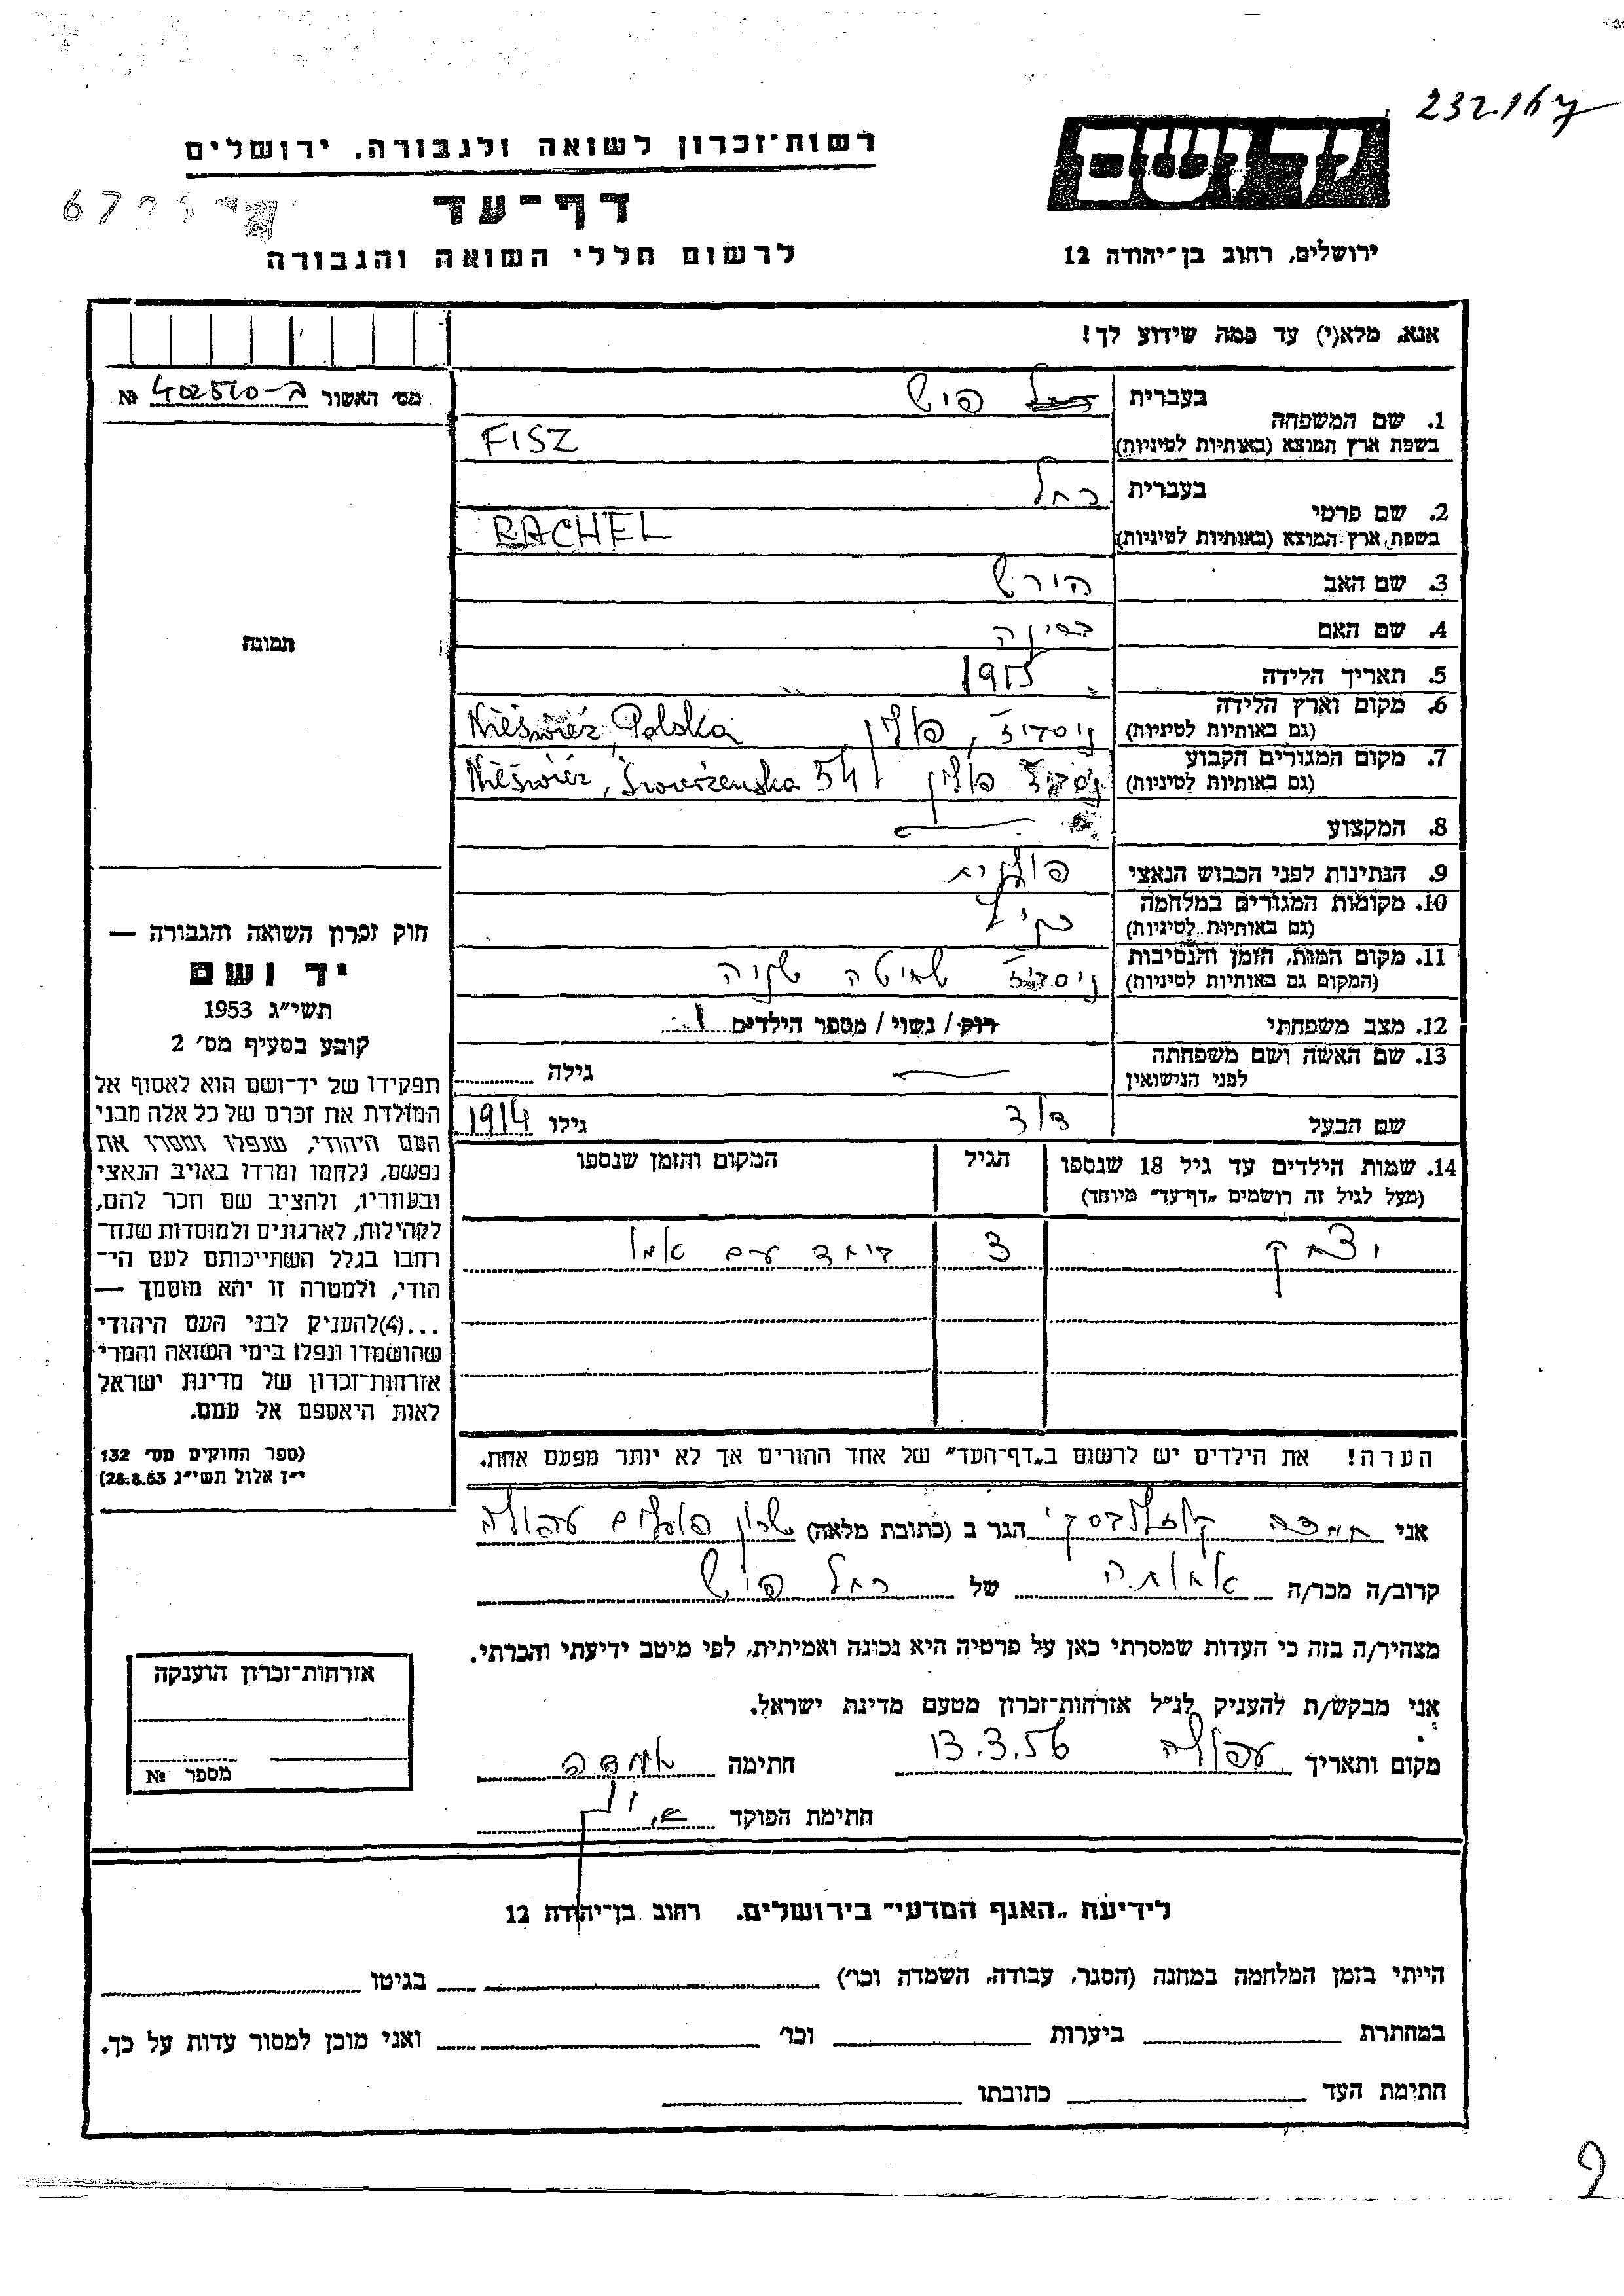 232167
יד ושם
רשות־זכרון לשואה ולגבורה, ירושלים
דף־עד
ירושלים, רחוב בן־יהודה 12
לרשום חללי השואה והגבורה
אנא, מלא(י) עד כמה שידוע לך!
מס׳ האשור ב-402510 №
1. שם המשפחה
בעברית פיש
בשפת ארץ המוצא (באותיות לטיניות) FISZ
2. שם פרטי
בעברית רחל
בשפת ארץ המוצא (באותיות לטיניות) RACHEL
3. שם האב הירש
4. שם האם
5. תאריך הלידה 1915
6. מקום וארץ הלידה
(גם באותיות לטיניות) ניסביז, פולין, Nieśwież, Polska
7. מקום המגורים הקבוע
(גם באותיות לטיניות) פולין Nieśwież, 54
8. המקצוע
9. הנתינות לפני הכבוש הנאצי פולנית
10. מקומות המגורים במלחמה
(גם באותיות לטיניות) כנ״ל
11. מקום המות, הזמן והנסיבות
(המקום גם באותיות לטיניות) ניסביז שחיטה שניה
12. מצב משפחתי רוק / נשוי / מספר הילדים 1
13. שם האשה ושם משפחתה
לפני הנישואין גילה
שם הבעל דוד גילו 1914
14. שמות הילדים עד גיל 18 שנספו הגיל המקום והזמן שנספו
(מעל לגיל זה רושמים „דף־עד״ מיוחד)
יצחק 3 ביחד עם אמו
הערה! את הילדים יש לרשום ב„דף־העד״ של אחד ההורים אך לא יותר מפעם אחת.
תמונה
חוק זכרון השואה והגבורה —
יד ושם
תשי״ג 1953
קובע בסעיף מס׳ 2
תפקידו של יד־ושם הוא לאסוף אל
המולדת את זכרם של כל אלה מבני
העם היהודי, שנפלו ומסרו את
נפשם, נלחמו ומרדו באויב הנאצי
ובעוזריו, ולהציב שם וזכר להם,
לקהילות, לארגונים ולמוסדות שנח־
רחבו בגלל השתייכותם לעם הי־
הודי, ולמטרה זו יהא מוסמך —
...(4) להעניק לבני העם היהודי
שהושמדו ונפלו בימי השואה והמרי
אזרחות־זכרון של מדינת ישראל
לאות היאספם אל עמם.
(ספר החוקים מס׳ 132
י״ז אלול תשי״ג 28.8.53)
אני חמדה הגר ב (כתובת מלאה) שכון פועלים עפולה
קרוב/ה מכר/ה אחותה של רחל פיש
מצהיר/ה בזה כי העדות שמסרתי כאן על פרטיה היא נכונה ואמיתית, לפי מיטב ידיעתי והכרתי.
אני מבקש/ת להעניק לנ״ל אזרחות־זכרון מטעם מדינת ישראל.
מקום ותאריך עפולה 13.3.56 חתימה
חתימת הפוקד
אזרחות־זכרון הוענקה
מספר №
לידיעת „האגף המדעי״ בירושלים. רחוב בן־יהודה 12
הייתי בזמן המלחמה במחנה (הסגר, עבודה, השמדה וכו׳) בגיטו
במחתרת ביערות וכו׳ ואני מוכן למסור עדות על כך.
חתימת העד כתובתו